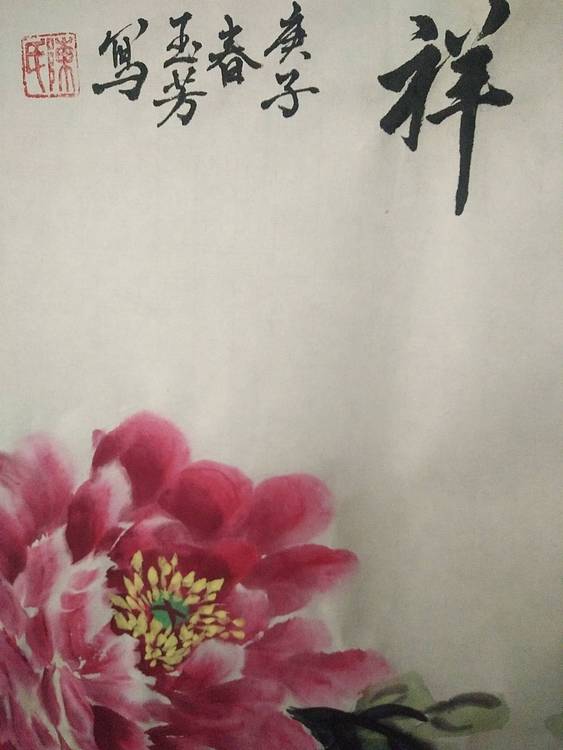 祥
庚子
春
玉芳
写
陳氏